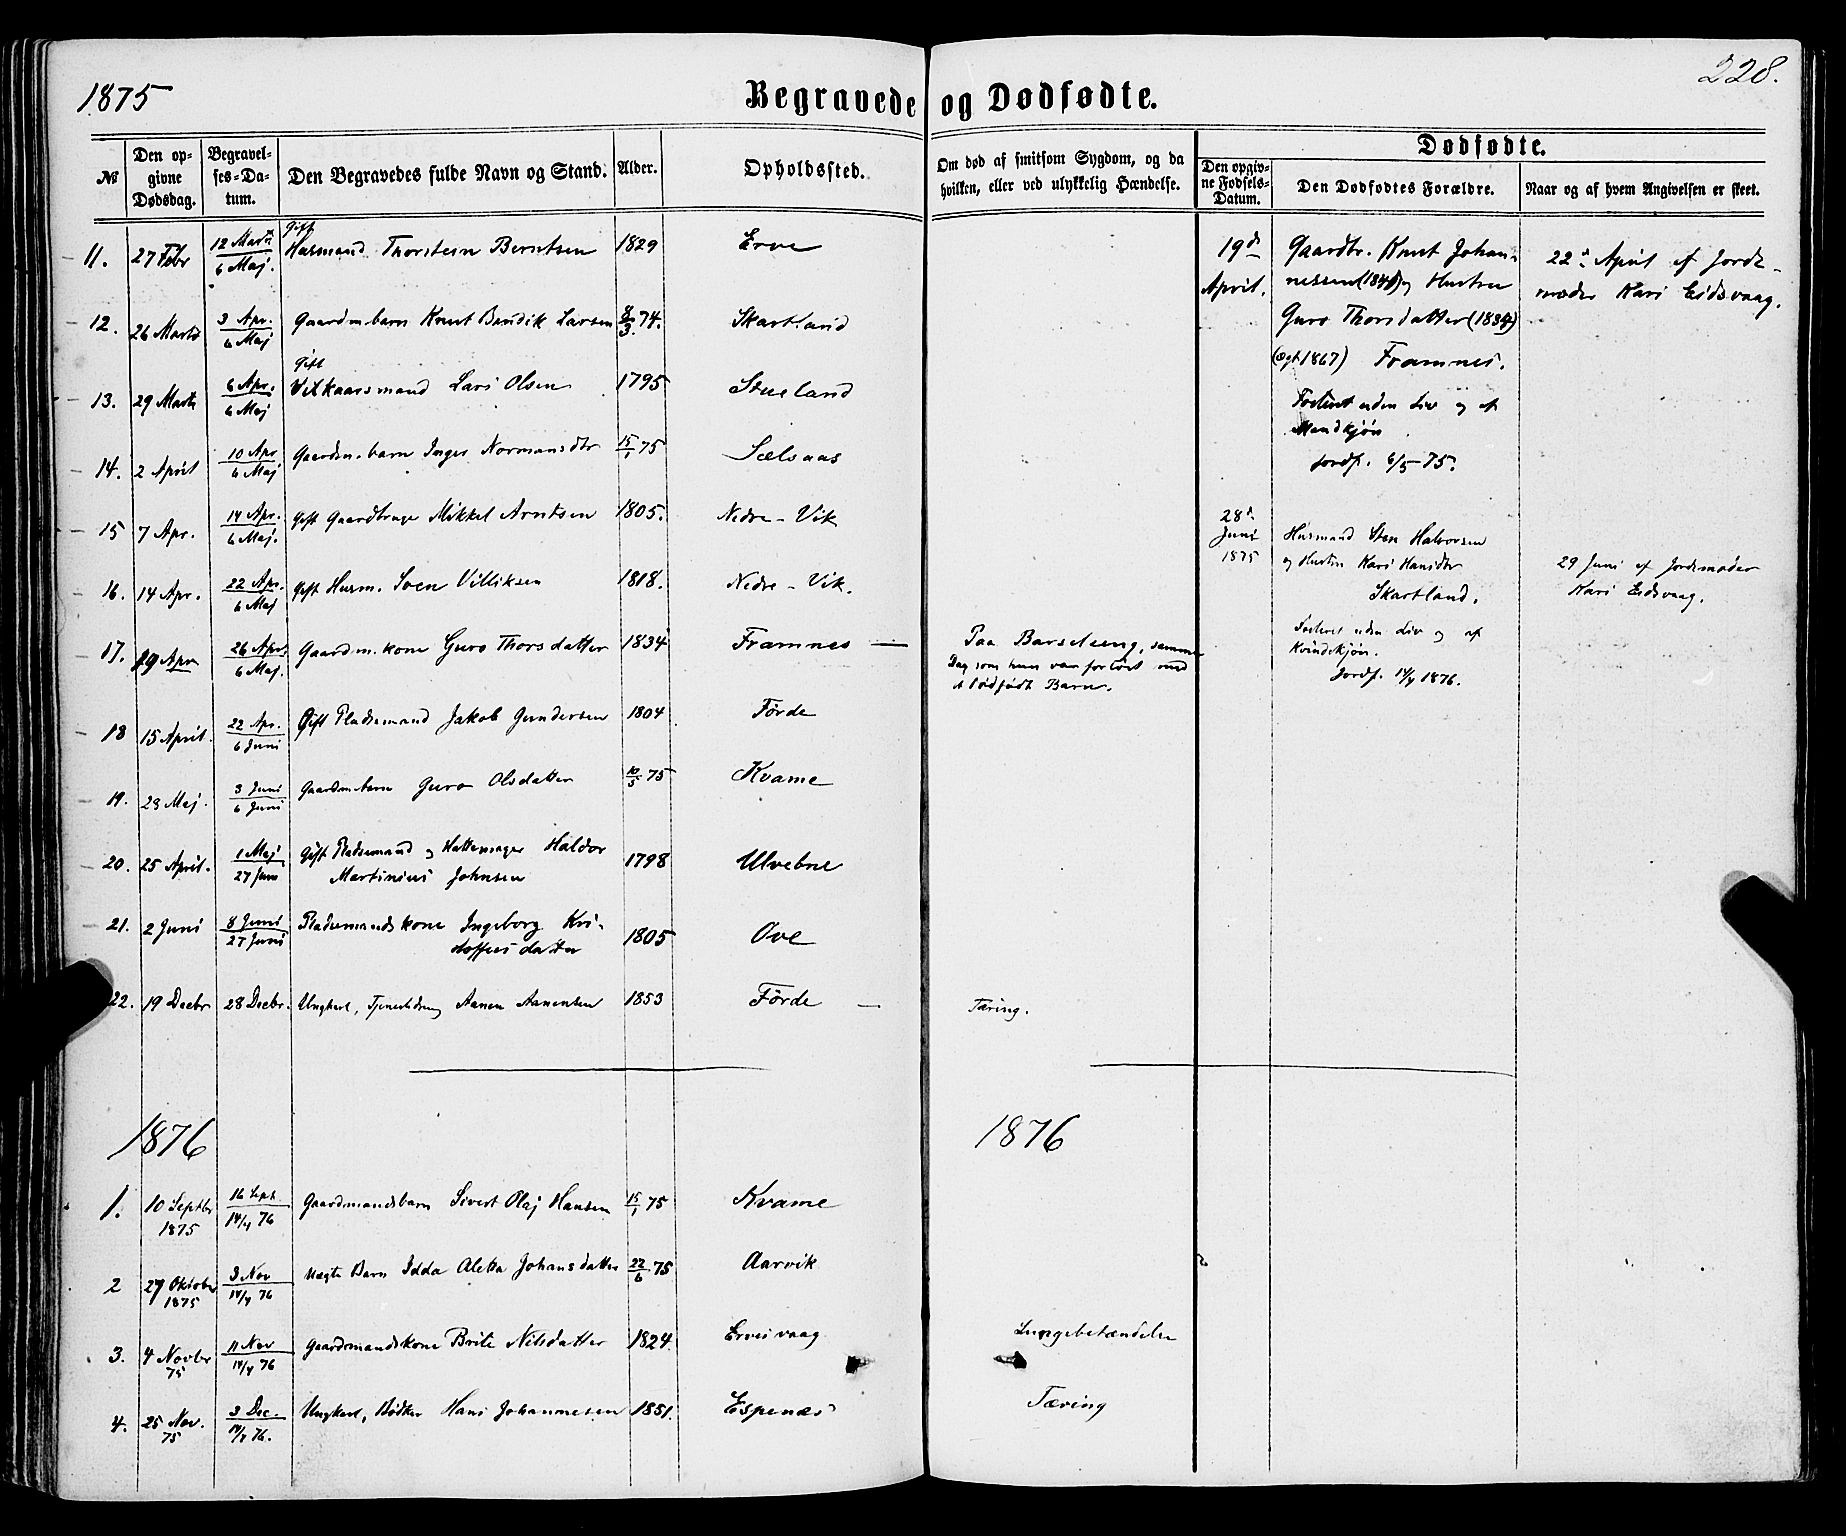 1875
Begravede og Dødfødte.
228.
№
Den op-
givne
Dødsdag.
Begravel-
ses-Da-
tum.
Den Begravedes fulde Navn og Stand.
Alder.
Opholdssted.
Om død af smitsom Sygdom, og da
hvilken, eller ved ulykkelig Hændelse.
Dødfødte.
Den opgiv-
ne Fødsels-
Datum.
Den Dødfødtes Forældre.
Naar og af hvem Angivelsen er skeet.
11. 27 Febr 12 Marts 6 Maj. Gift
Husmand Thorstein Berntsen 1829 Erve
12. 26 Marts 3 Apr. 6 Maj Gaardm.barn Knut Bendik Larsen 8/3. 74. Skartland
13. 29 Marts 6 Apr. 6 Maj Gift
Vilkaarsmand Lars Olsen 1795 Stueland
14. 2 April 10 Apr 6 Maj Gaardm.barn Inger Normansdtr 15/1 75 Sælsaas
15 7 Apr. 14 Apr. 6 Maj. Gift Gaardbruger Mikkel Arntsen 1805. Nedre-Vik
16. 14 Apr. 22 Apr. 6 Maj Gift Husm. Soen Villiksen 1818. Nedre-Vik.
17. 19 Apr 26 Apr. 6 Maj. Gaardm.kone Guro Thorsdatter 1834 Framnes —
Paa Barselseng, samme
Dag som hun var forløst med
et dødfødt Barn.
18 15 April. 22 Apr. 6 Juni Gift Pladsemand Jakob Gundersen 1804 Førde
19. 23 Maj. 3 Juni 6 Juni Gaardm.barn Guro Olsdatter 10/5 75 Kvame
20. 25 April. 1 Maj 27 Juni Gift Pladsemand og Hattemager Haldor
Martinius Johnsen 1798 Ulvebne
21. 2 Juni 8 Juni 27 Juni Pladsemandskone Ingeborg Kri-
stoffersdatter 1805 Ove
22. 19 Decbr 28 Decbr. Ungkarl, Tjenestedreng Aanen Aanensen 1853 Førde — Tæring.
19de
April.
Gaardbr. Knut Johan-
nessen (1840) og Hustru
Guro Thorsdatter (1834)
(Ægt. 1867) Framnes.
Forløst uden Liv og af
Mandkjøn.
Jordf. 6/5-75.
22de April af Jorde-
moder Kari Eidsvaag.
28de
Juni
1875
Husmand Sten Halvorsen
og Hustru Kari Hansdtr
Skartland.
Forløst uden Liv og af
Kvindekjøn.
Jordf. 14/4 1876.
29 Juni af Jordemoder
Kari Eidsvaag.
1876
1876
1. 10 Septbr 1875 16 Sept. 14/4 76 Gaardmandsbarn Sivert Olaj Hansen 15/1 75 Kvame
2 27 Oktober 1875 3 Nov 14/4 76 Uægte Barn Idda Aletta Johansdatter 22/6 75 Aarvik
3. 4 Novbr 75 11 Nov 14/4 76 Gaardmandskone Brite Nilsdatter 1824. Ervesvaag Lungebetændelse
4. 25 Nov. 75 3 Dec. 14/4 76. Ungkarl, Bødker Hans Johannesen 1851. Espenæs Tæring